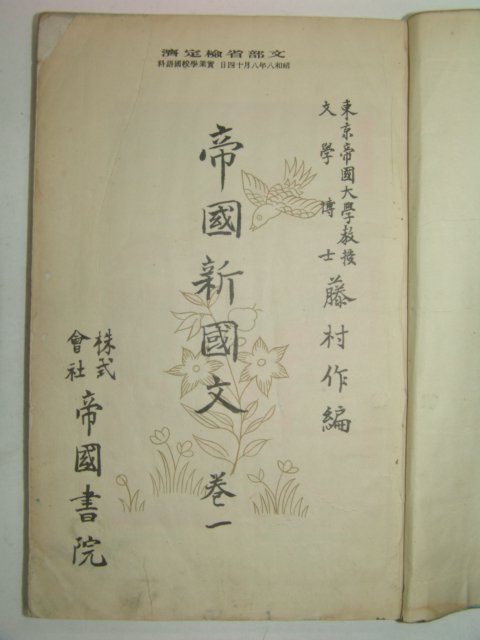 文部省檢定濟
昭和八年八月十四日 實業學校國語科
東京帝國大學教授
文學博士
藤村作編
帝國新國文 卷一
株式
會社
帝國書院